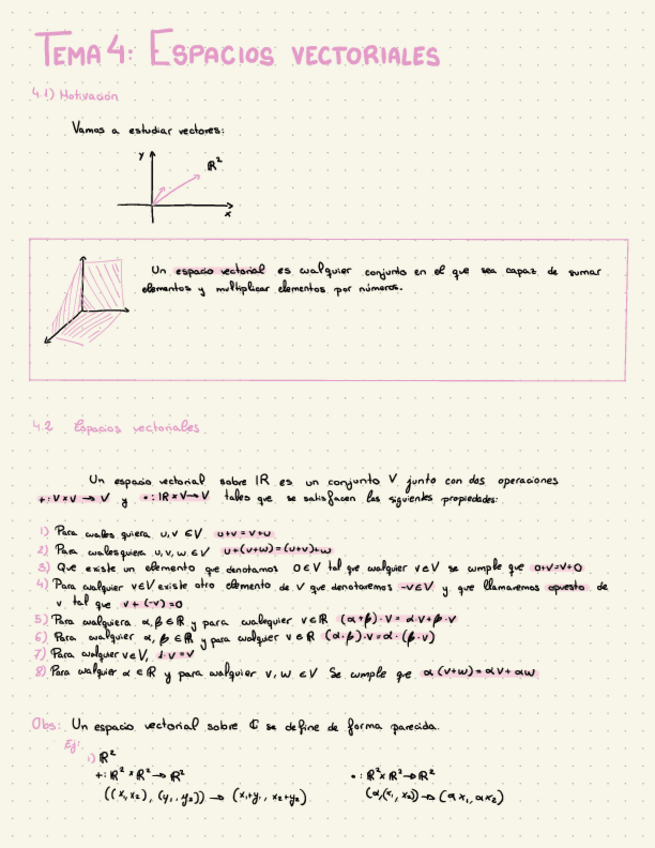 TEMA 4: ESPACIOS VECTORIALES
4.1) Motivación
Vamos a estudiar vectores:
y
ℝ²
x
Un espacio vectorial es cualquier conjunto en el que sea capaz de sumar
elementos y multiplicar elementos por números.
4.2 Espacios vectoriales
Un espacio vectorial sobre ℝ es un conjunto V junto con dos operaciones
+: V×V → V y •: ℝ×V → V tales que se satisfacen las siguientes propiedades:
1) Para cuales quiera u, v ∈ V u+v = v+u
2) Para cualesquiera u, v, w ∈ V u+(v+w) = (u+v)+w
3) Que existe un elemento que denotamos 0 ∈ V tal que cualquier v ∈ V se cumple que 0+v=v+0
4) Para cualquier v ∈ V existe otro elemento de V que denotaremos -v ∈ V y que llamaremos opuesto de
v tal que v + (-v) = 0
5) Para cualquiera α, β ∈ ℝ y para cualquier v ∈ ℝ (α+β)·v = α·v+β·v
6) Para cualquier α, β ∈ ℝ y para cualquier v ∈ ℝ (α·β)·v = α·(β·v)
7) Para cualquier v ∈ V, 1·v = v
8) Para cualquier α ∈ ℝ y para cualquier v, w ∈ V Se cumple que α(v+w) = αv + αw
Obs: Un espacio vectorial sobre ℂ se define de forma parecida.
Ej:
1) ℝ²
+: ℝ² × ℝ² → ℝ² • : ℝ² × ℝ² → ℝ²
((x₁, x₂), (y₁, y₂)) → (x₁+y₁, x₂+y₂) (α,(x₁, x₂)) → (αx₁, αx₂)